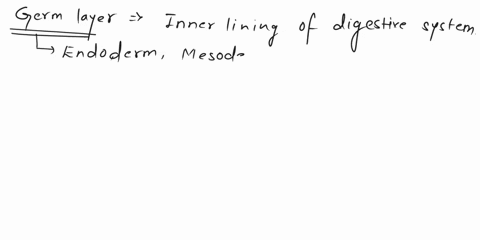 Germ layer => Inner lining of digestive system
↳ Endoderm, Mesod